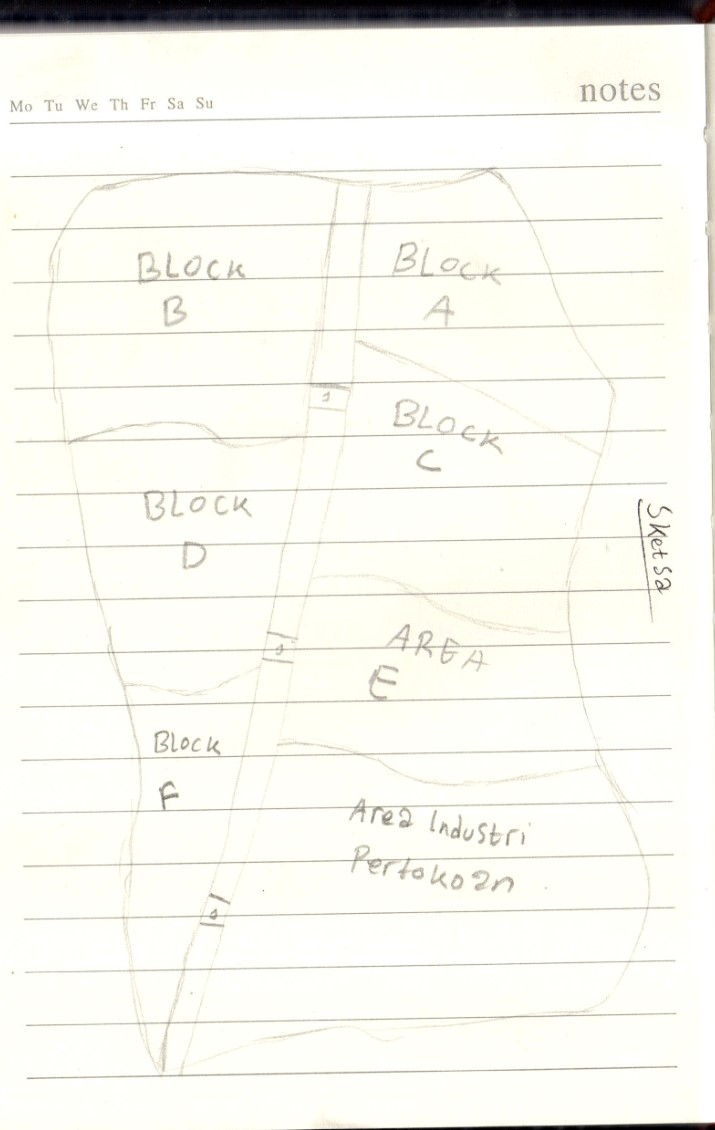 Mo Tu We Th Fr Sa Su
notes
BLOCK
B
BLOCK
A
1
BLOCK
C
BLOCK
D
Sketsa
AREA
E
Block
F
Area Industri
Pertokoan